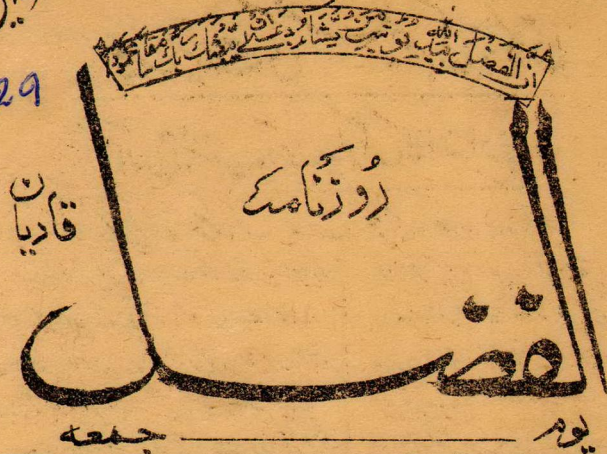 ان الفضل بید اللہ یؤتیہ من یشاء عسیٰ ان یبعثک ربک مقاما محمودا
29
روزنامہ
قادیان
الفضل
یوم جمعہ